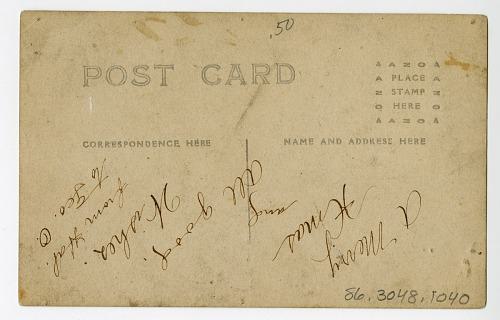 .50
POST CARD
AZOA
A PLACE A
Z STAMP Z
O HERE O
AZOA
CORRESPONDENCE HERE
NAME AND ADDRESS HERE
A Merry
Xmas
and
All good
Wishes
from Hal.
to Geo. C.
86.3048.1040